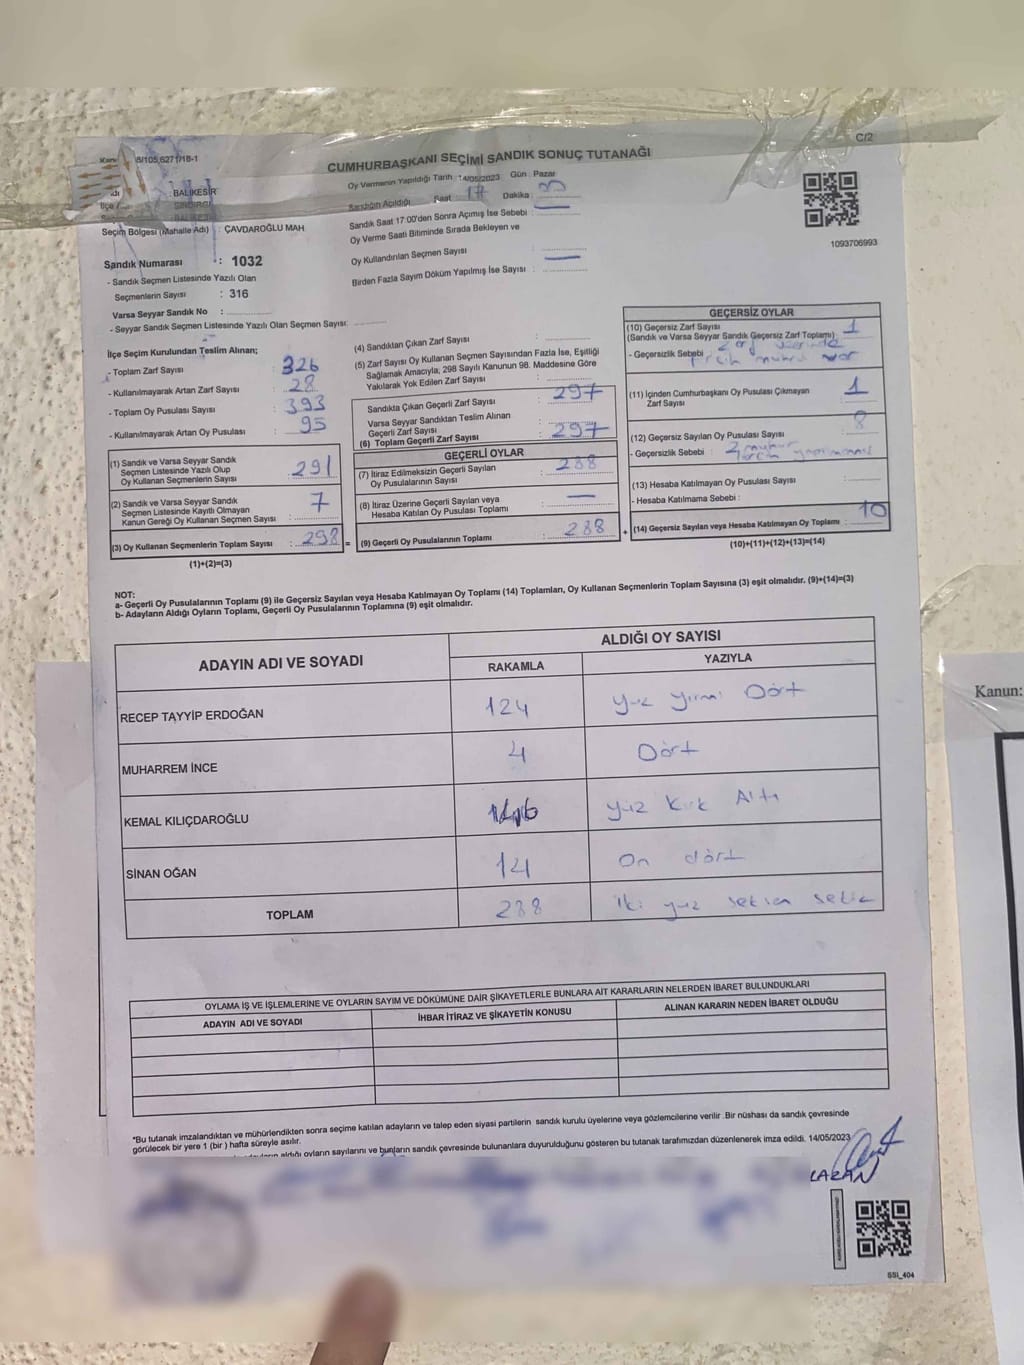 C/2
B/105.6271/18-1
CUMHURBAŞKANI SEÇİMİ SANDIK SONUÇ TUTANAĞI
Oy Vermenin Yapıldığı Tarih : 14/05/2023 Gün : Pazar
: BALIKESİR
İlçe : SINDIRGI
Sandığın Açıldığı Saat 17 Dakika :
Seçim Bölgesi (Mahalle Adı) : ÇAVDAROĞLU MAH
Sandık Saat 17:00'den Sonra Açımış İse Sebebi : —
Oy Verme Saati Bitiminde Sırada Bekleyen ve
Oy Kullandırılan Seçmen Sayısı
Birden Fazla Sayım Döküm Yapılmış İse Sayısı : —
1093706993
Sandık Numarası : 1032
- Sandık Seçmen Listesinde Yazılı Olan
Seçmenlerin Sayısı : 316
Varsa Seyyar Sandık No :
- Seyyar Sandık Seçmen Listesinde Yazılı Olan Seçmen Sayısı:
İlçe Seçim Kurulundan Teslim Alınan;
- Toplam Zarf Sayısı : 326
- Kullanılmayarak Artan Zarf Sayısı : 28
- Toplam Oy Pusulası Sayısı : 393
- Kullanılmayarak Artan Oy Pusulası : 95
(1) Sandık ve Varsa Seyyar Sandık
Seçmen Listesinde Yazılı Olup
Oy Kullanan Seçmenlerin Sayısı : 291
(2) Sandık ve Varsa Seyyar Sandık
Seçmen Listesinde Kayıtlı Olmayan
Kanun Gereği Oy Kullanan Seçmen Sayısı : 7
(3) Oy Kullanan Seçmenlerin Toplam Sayısı : 298 =
(1)+(2)=(3)
(4) Sandıktan Çıkan Zarf Sayısı :
(5) Zarf Sayısı Oy Kullanan Seçmen Sayısından Fazla İse, Eşitliği
Sağlamak Amacıyla, 298 Sayılı Kanunun 98. Maddesine Göre
Yakılarak Yok Edilen Zarf Sayısı :
Sandıkta Çıkan Geçerli Zarf Sayısı : 297
Varsa Seyyar Sandıktan Teslim Alınan
Geçerli Zarf Sayısı :
(6) Toplam Geçerli Zarf Sayısı : 297
GEÇERLİ OYLAR
(7) İtiraz Edilmeksizin Geçerli Sayılan
Oy Pusulasının Sayısı : 288
(8) İtiraz Üzerine Geçerli Sayılan veya
Hesaba Katılan Oy Pusulası Toplamı : —
(9) Geçerli Oy Pusulalarının Toplamı : 288 +
GEÇERSİZ OYLAR
(10) Geçersiz Zarf Sayısı
(Sandık ve Varsa Seyyar Sandık Geçersiz Zarf Toplamı) : 1
- Geçersizlik Sebebi : zarf üzerinde
tercih mührü var
(11) İçinden Cumhurbaşkanı Oy Pusulası Çıkmayan
Zarf Sayısı : 1
(12) Geçersiz Sayılan Oy Pusulası Sayısı : 8
- Geçersizlik Sebebi : 2 mühür
Tercih yapılmamış
(13) Hesaba Katılmayan Oy Pusulası Sayısı :
- Hesaba Katılmama Sebebi :
(14) Geçersiz Sayılan veya Hesaba Katılmayan Oy Toplamı : 10
(10)+(11)+(12)+(13)=(14)
NOT:
a- Geçerli Oy Pusulalarının Toplamı (9) ile Geçersiz Sayılan veya Hesaba Katılmayan Oy Toplamı (14) Toplamları, Oy Kullanan Seçmenlerin Toplam Sayısına (3) eşit olmalıdır. (9)+(14)=(3)
b- Adayların Aldığı Oyların Toplamı, Geçerli Oy Pusulalarının Toplamına (9) eşit olmalıdır.
ADAYIN ADI VE SOYADI
ALDIĞI OY SAYISI
RAKAMLA YAZIYLA
RECEP TAYYİP ERDOĞAN 124 Yüz Yirmi Dört
MUHARREM İNCE 4 Dört
KEMAL KILIÇDAROĞLU 146 Yüz Kırk Altı
SİNAN OĞAN 14 On dört
TOPLAM 288 İki yüz seksen sekiz
OYLAMA İŞ VE İŞLEMLERİNE VE OYLARIN SAYIM VE DÖKÜMÜNE DAİR ŞİKAYETLERLE BUNLARA AİT KARARLARIN NELERDEN İBARET BULUNDUKLARI
ADAYIN ADI VE SOYADI İHBAR İTİRAZ VE ŞİKAYETİN KONUSU ALINAN KARARIN NEDEN İBARET OLDUĞU
*Bu tutanak imzalandıktan ve mühürlendikten sonra seçime katılan adayların ve talep eden siyasi partilerin sandık kurulu üyelerine veya gözlemcilerine verilir .Bir nüshası da sandık çevresinde
görülecek bir yere 1 (bir ) hafta süreyle asılır.
aldığı oyların sayılarını ve bunların sandık çevresinde bulunanlara duyurulduğunu gösteren bu tutanak tarafımızdan düzenlenerek imza edildi. 14/05/2023
SSI_404
Kanun: